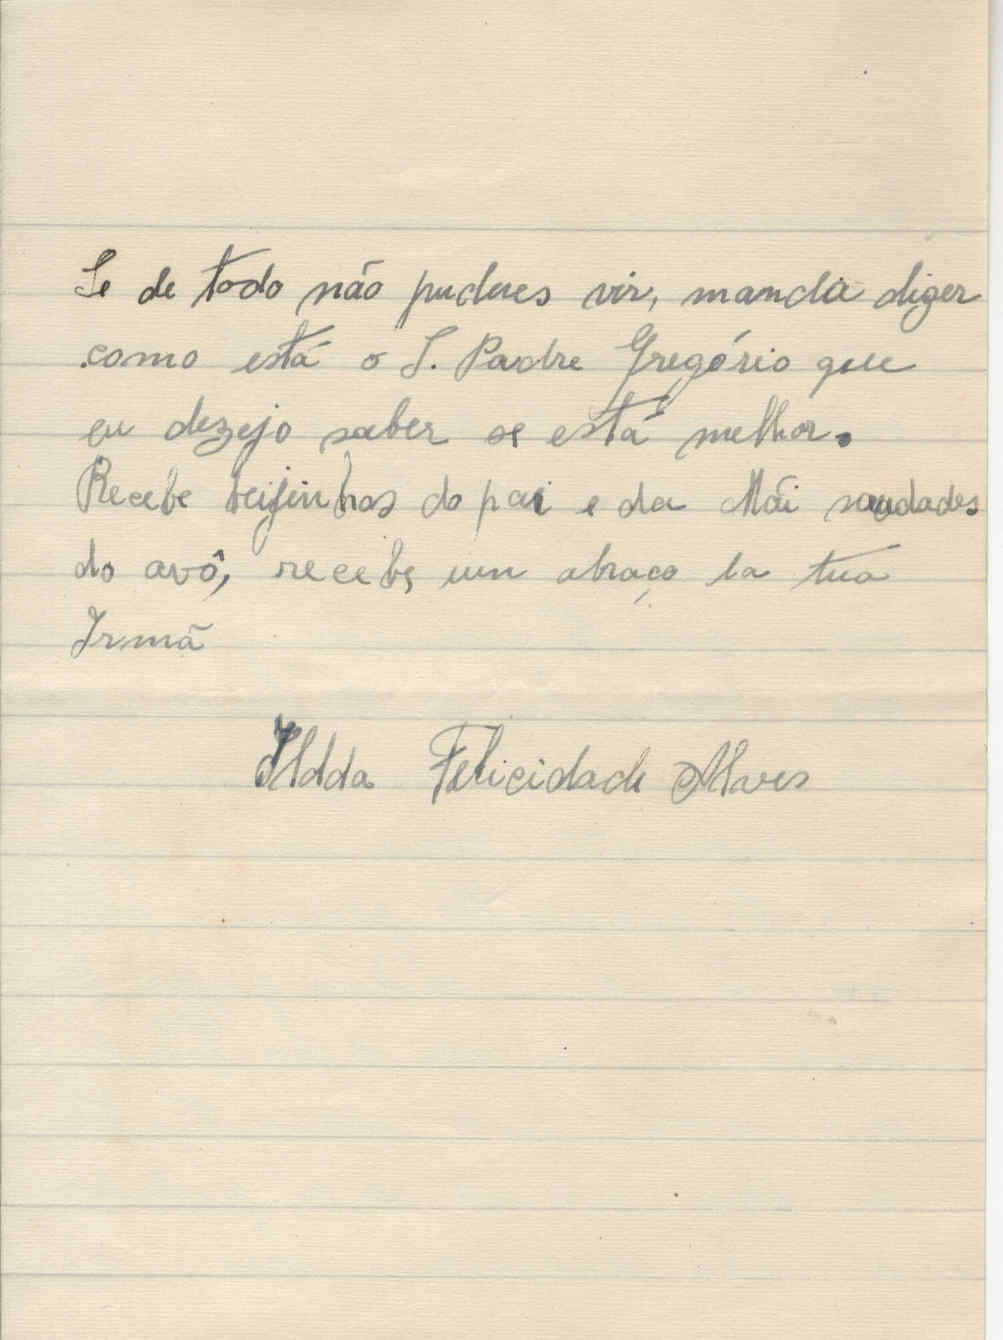 Se de todo não puderes vir, manda dizer
como está o S. Padre Gregório que
eu dezejo saber se está melhor.
Recebe beijinhos do pai e da Mãi saudades
do avô, recebe um abraço da tua
Irmã
Ilda Felicidade Alves